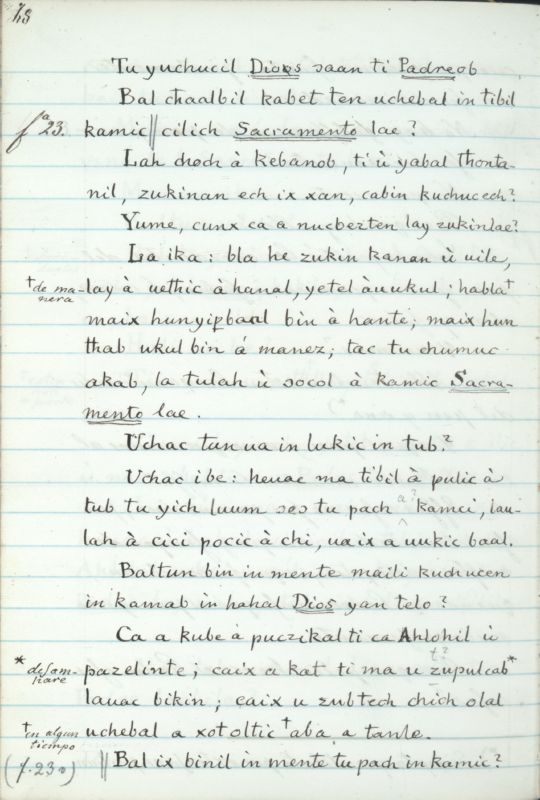 48
Tu yuchucil Dioɔs ɔaan ti Padreob
Bal chaalbil kabet ten uchebal in tibil
fª 23. kamic || cilich Sacramento lae?
Lah choch à kebanob, ti ù yabal thonta-
nil, zukinan ech ix xan, cabin kuchucech?
Yume, cunx ca a nucbezten lay zukinlae?
La ika: bla he zukin kanan ù uile,
† de ma-
nera
lay à uethic à hanal, yetel àuukul; habla†
maix hunyipbaal bin à hante; maix hun
thab ukul bin á manez; tac tu chumuc
akab, la tulah ù ɔocol à kamic Sacra-
mento lae.
Uchac tun ua in lukic in tub?
Uchac ibe: heuac ma tibil à pulic à
tub tu yich luum ɔeɔ tu pach a? kamci, lau-
lah à cici pocic à chi, ua ix a uukic baal.
Baltun bin in mente maili kuchucen
in kamab in hahal Dios yan telo?
Ca a kube à puczikal ti ca Ahlohil ù
* desam-
pare
pazelinte; caix a kat ti ma u zupulcab*
t?
lauac bikin; caix u zubtech chich olal
† en algun
tiempo
uchebal a xotoltic † aba a tanle.
(f. 23 v) || Bal ix binil in mente tu pach in kamic?